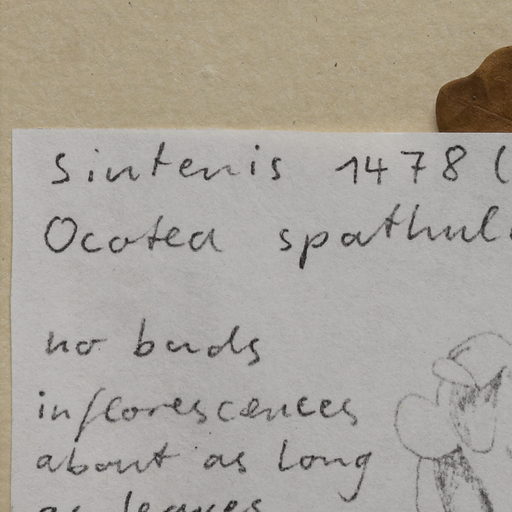 Sintenis 1478 (
Ocotea spathul
no buds
inflorescences
about as long
as leaves